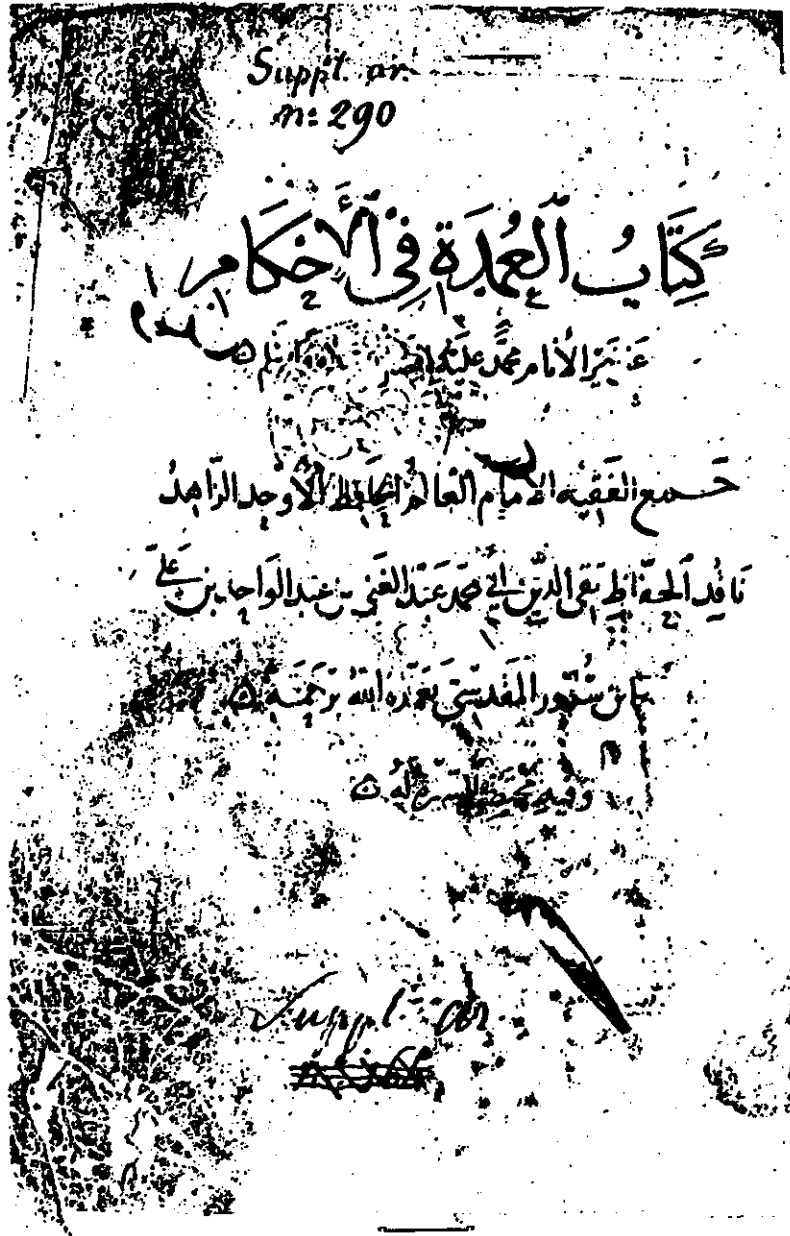 Suppl. ar.
n: 290
كِتَابُ الْعُمْدَةِ فِي الْأَحْكَامِ
عَن خَيْرِ الأَنَامِ مُحَمَّدٍ عَلَيْهِ
جمع الفقيه الامام العالم الحافظ الأوحد الزاهد
نَاقِد الحفّاظ تقى الدين أبي محمد عبد الغني بن عبد الواحد بن علي
بن سُرُور المقدسي تغمّده الله برحمته
Suppl. ar.